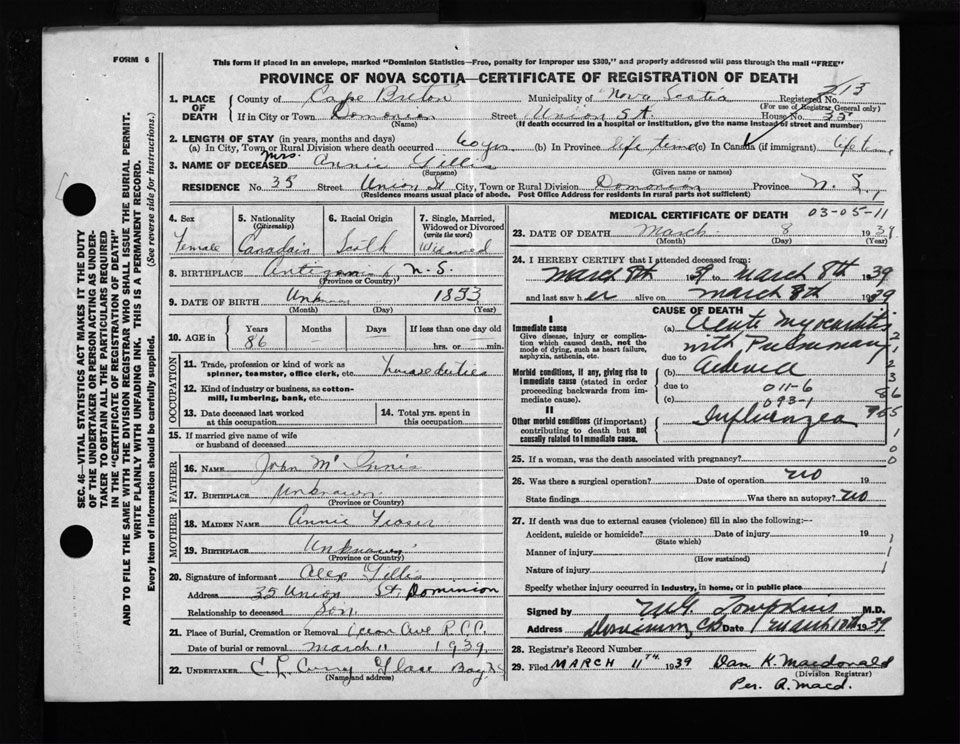 FORM 6
This form if placed in an envelope, marked "Dominion Statistics—Free, penalty for improper use $300," and properly addressed will pass through the mail "FREE"
PROVINCE OF NOVA SCOTIA—CERTIFICATE OF REGISTRATION OF DEATH
1. PLACE OF DEATH County of Cape Breton Municipality of Nova Scotia Registered No. 213
(For use of Registrar General only)
If in City or Town Domonion Street Union St. House No. 35
(Name) (If death occurred in a hospital or institution, give the name instead of street and number)
2. LENGTH OF STAY (in years, months and days)
(a) In City, Town or Rural Division where death occurred 60 yrs. (b) In Province life time (c) In Canada (if immigrant) life time
3. NAME OF DECEASED Mrs. Annie Gillis
(Surname) (Given name or names)
RESIDENCE No. 35 Street Union St City, Town or Rural Division Domonion Province N. S.,
(Residence means usual place of abode. Post Office Address for Residents in rural parts not sufficient)
4. Sex Female
5. Nationality (Citizenship) Canadain
6. Racial Origin Scoth
7. Single, Married, Widowed or Divorced (write the word) Widowed
8. BIRTHPLACE Antigonish, N. S.
(Province or Country)
9. DATE OF BIRTH Unknown 1853
(Month) (Day) (Year)
10. AGE in Years 86 Months Days If less than one day old hrs. or min.
OCCUPATION
11. Trade, profession or kind of work as spinner, teamster, office clerk, etc. house duties
12. Kind of industry or business, as cotton-mill, lumbering, bank, etc.
13. Date deceased last worked at this occupation
14. Total yrs. spent in this occupation
15. If married give name of wife or husband of deceased
FATHER
16. NAME John Mc Innis
17. BIRTHPLACE Unknown
(Province or Country)
MOTHER
18. MAIDEN NAME Annie Fraser
19. BIRTHPLACE Unknown
(Province or Country)
20. Signature of informant Alex Gillis
Address 35 Union St. Dominion
Relationship to deceased Son.
21. Place of Burial, Cremation or Removal Ocean Ave R.C.C.
Date of burial or removal March 11 1939
22. UNDERTAKER C L Curry Glace Bay N S
(Name and address)
MEDICAL CERTIFICATE OF DEATH 03-05-11
23. DATE OF DEATH March 8 1939
(Month) (Day) (Year)
24. I HEREBY CERTIFY that I attended deceased from:
March 8th 1939 to March 8th 1939
and last saw her alive on March 8th 1939
CAUSE OF DEATH
I
Immediate cause
Give disease, injury or complication which caused death, not the mode of dying, such as heart failure, asphyxia, asthenia, etc.
(a) Acute Myocarditis with Pulmonary
due to
Morbid conditions, if any, giving rise to immediate cause (stated in order proceeding backwards from immediate cause).
(b)
due to 011-6
(c) 093-1
II
Other morbid conditions (if important) contributing to death but not causally related to immediate cause.
Influenzea
25. If a woman, was the death associated with pregnancy?
26. Was there a surgical operation? Date of operation no 19
State findings Was there an autopsy? no
27. If death was due to external causes (violence) fill in also the following:—
Accident, suicide or homicide? Date of injury 19
(State which)
Manner of injury
(How sustained)
Nature of injury
Specify whether injury occurred in industry, in home, or in public place
Signed by M.G. Tompkins M.D.
Address Dominion, CB Date March 10th 1939
28. Registrar's Record Number
29. Filed MARCH 11TH. 1939 Dan K. Macdonald
(Division Registrar)
Per. A. Macd.
SEC. 46—VITAL STATISTICS ACT MAKES IT THE DUTY
OF THE UNDERTAKER OR PERSON ACTING AS UNDER-
TAKER TO OBTAIN ALL THE PARTICULARS REQUIRED
IN THE "CERTIFICATE OF REGISTRATION OF DEATH"
AND TO FILE THE SAME WITH THE DIVISION REGISTRAR WHO SHALL ISSUE THE BURIAL PERMIT.
WRITE PLAINLY WITH UNFADING INK. THIS IS A PERMANENT RECORD.
Every item of information should be carefully supplied. (See reverse side for instructions.)